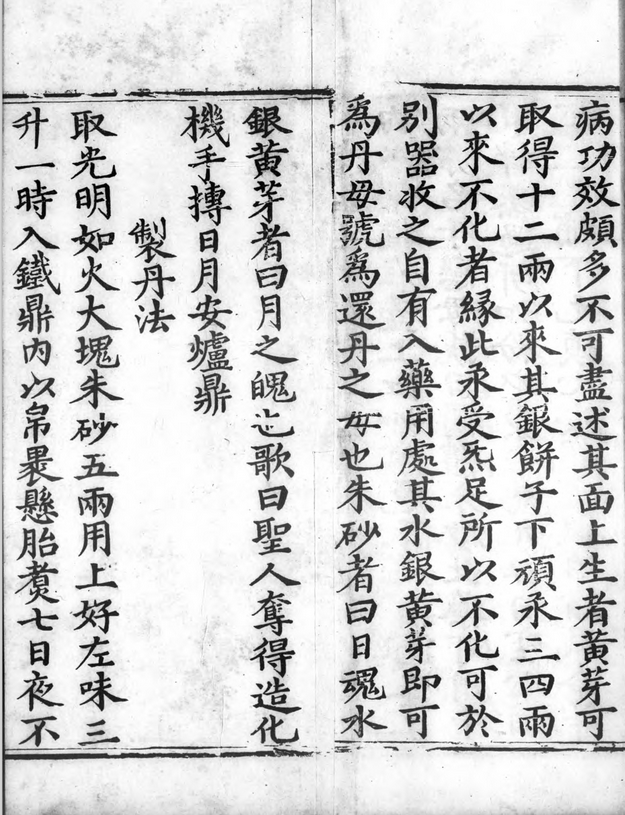 病功效頗多不可盡述其面上生者黃芽可
取得十二兩以來其銀餅子下頑汞三四兩
以來不化者緣此汞受炁足所以不化可於
別器收之自有入藥用處其水銀黃芽即可
為丹母號為還丹之母也朱砂者曰日魂水
銀黃芽者曰月之魄也歌曰聖人奪得造化
機手摶日月安爐鼎
製丹法
取光明如火大塊朱砂五兩用上好左味三
升一時入鐵鼎內以帛裹懸胎煑七日夜不